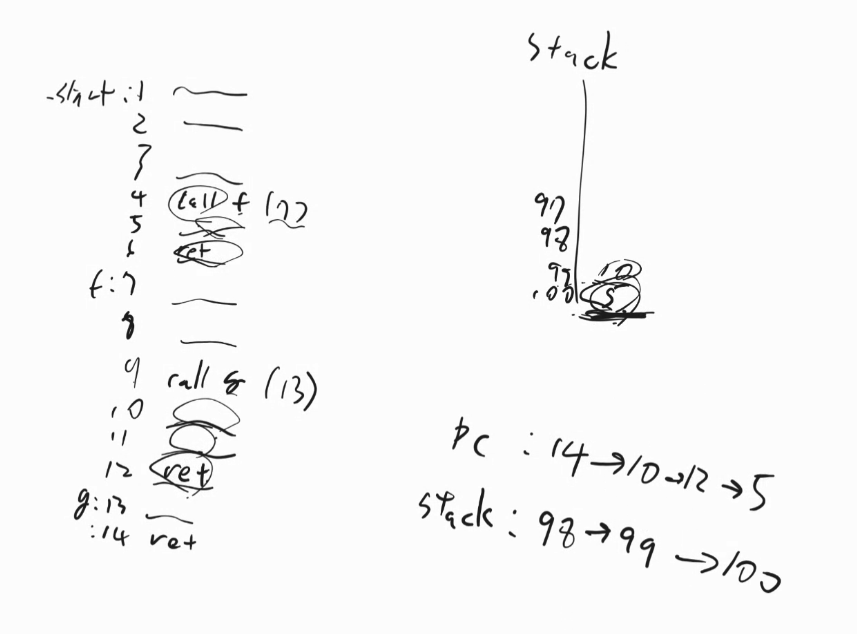 stack
-start:1
2
3
4 call f (7)
5
6 ret
f:7
8
9 call g (13)
10
11
12 ret
g:13
:14 ret
97
98
99 10
100 5
PC : 14→10→12→5
stack : 98→99→100